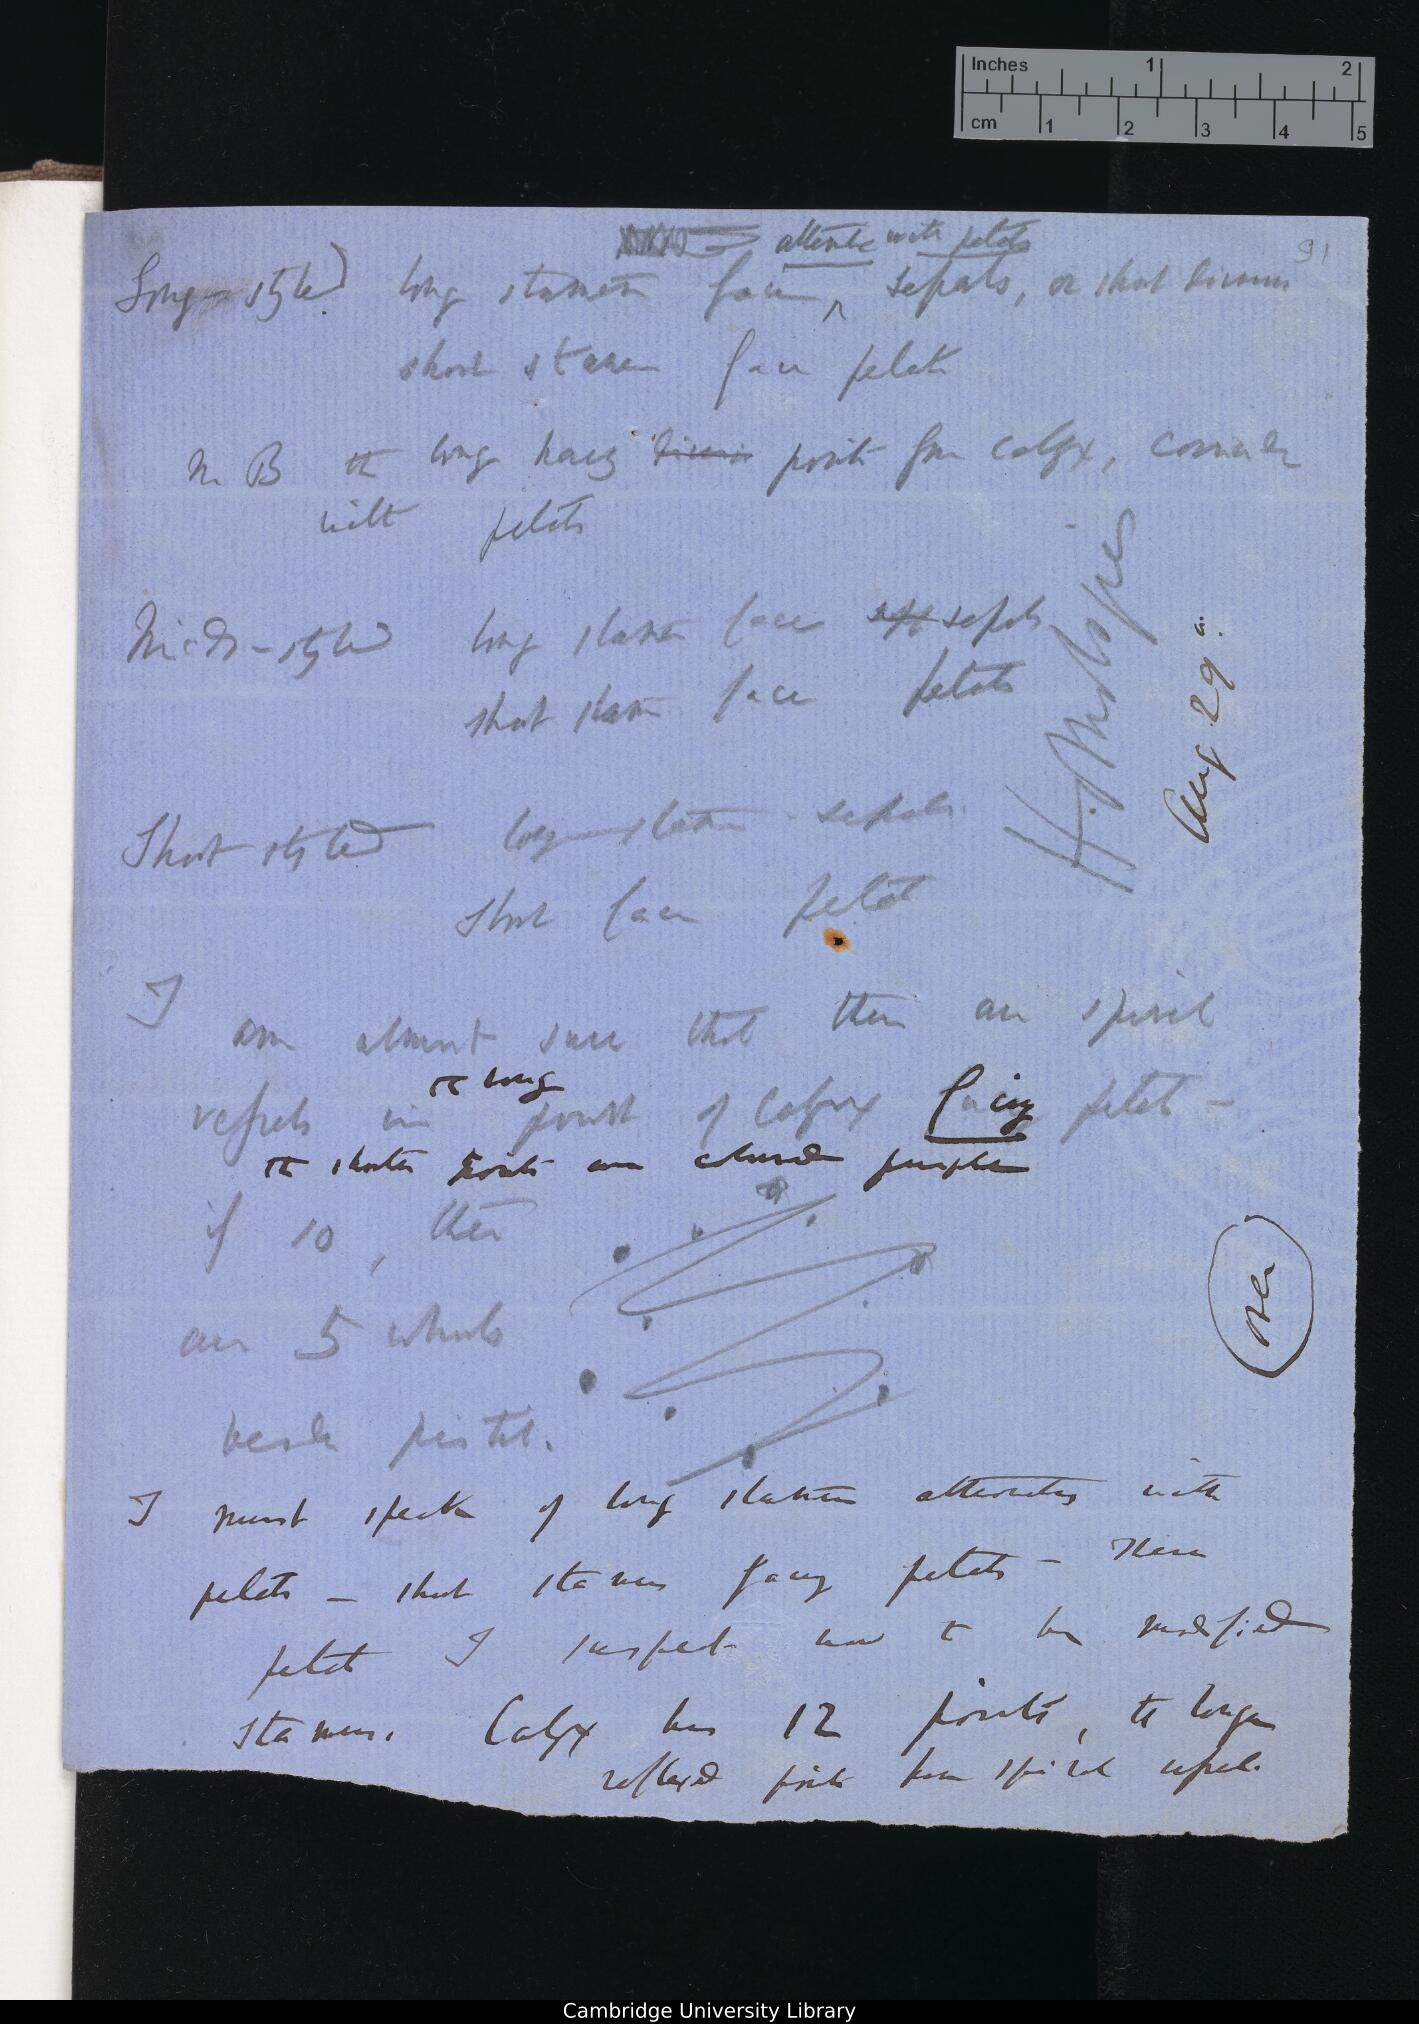 Inches 1 2
cm 1 2 3 4 5
91
alternate with petals
Long-styled) long stamen face ^ sepals, or short
short stamen face petals
N B the long points from Calyx,
with petals
Mid-styled long stamen face sepals
short stamen face petals
H. Aug 29
Short styled long stamen sepals
short face petal
I
am almost sure that there are spiral
the long
vessels in points of Calyx facing petals —
the shorter points are coloured purple
if 10, then
are 5 whorls
beside pistil.
over
I must speak of long stamens alternating with
petals — short stamens facing petals — These
petals I suspect now to be modified
stamens. Calyx has 12 points, the longer
reflexed points have spiral vessels.
Cambridge University Library